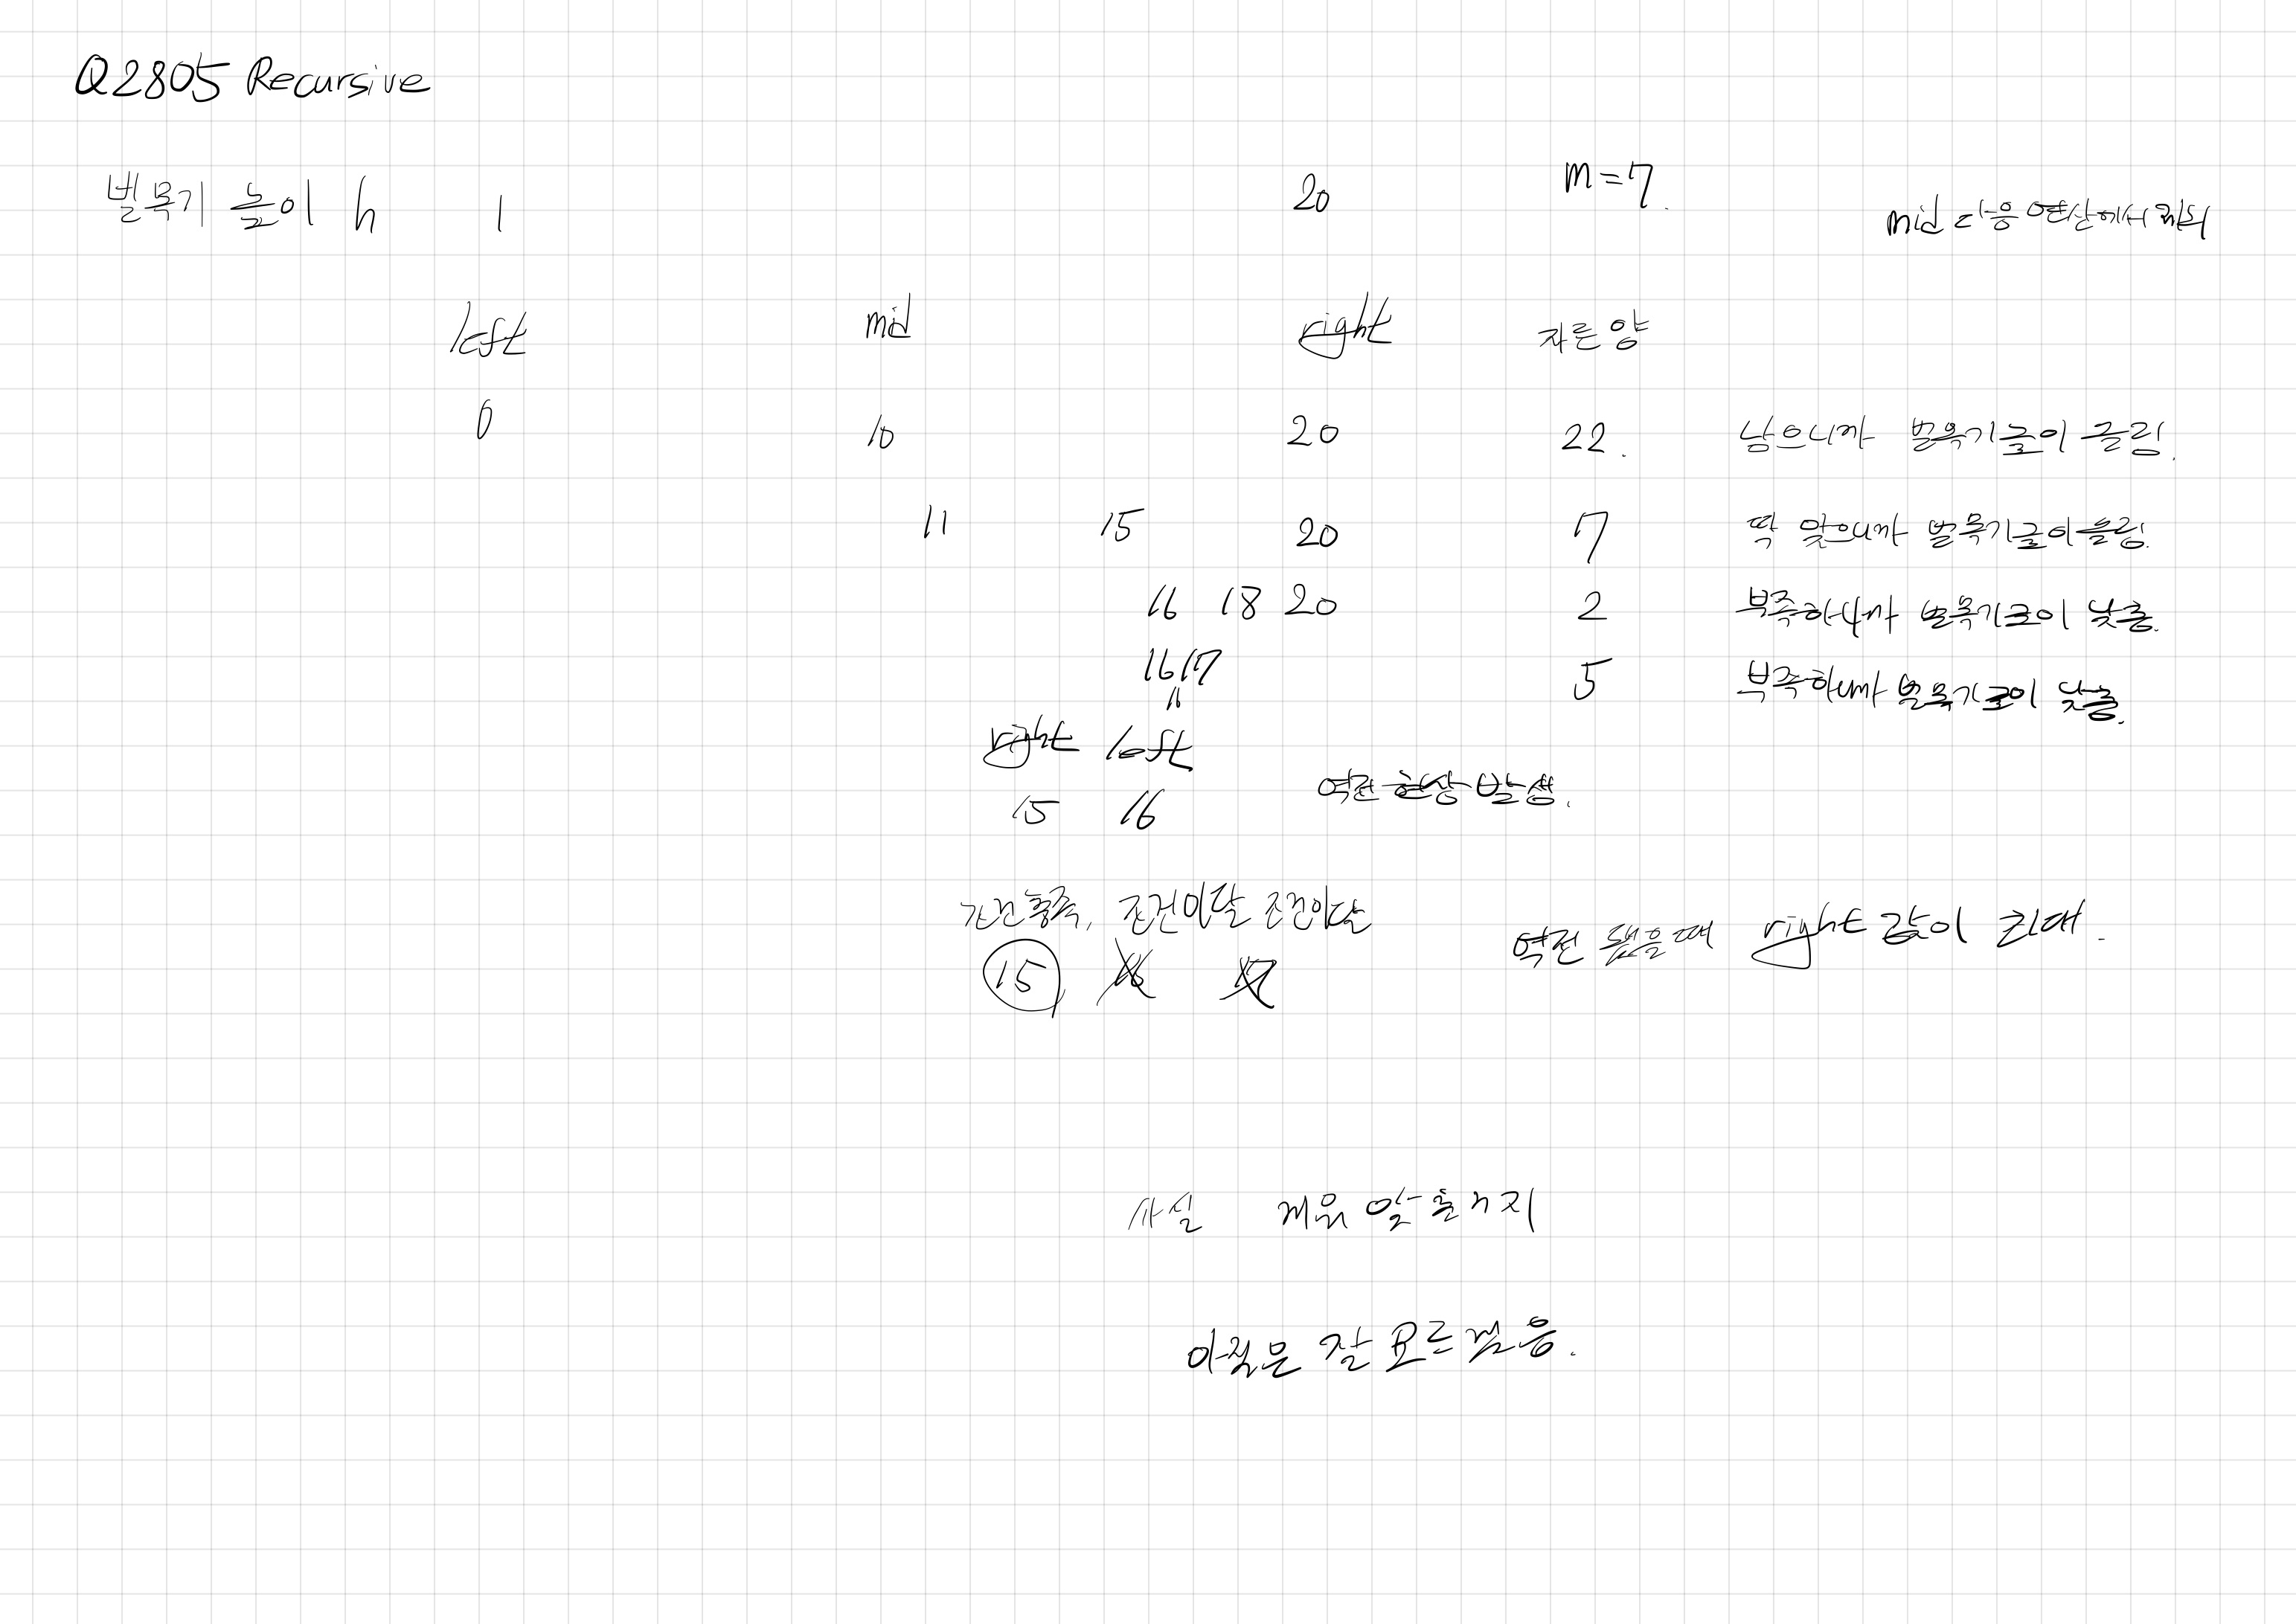 Q2805 Recursive
벌목기 높이 h 1 20 m=7.
mid 다음 연산에서 제외
left mid right 자른 양
0 10 20 22. 남으니까 벌목기높이 올림.
11 15 20 7 딱 맞으니까 벌목기높이올림.
16 18 20 2 부족하니까 벌목기높이 낮춤.
16 17 5 부족하니까 벌목기높이 낮춤.
16
right left
15 16 역전 현상 발생.
조건충족, 조건미달 조건미달
15 16 17 역전 됐을때 right 값이 최대.
사실
아직은 잘 모르겠음.